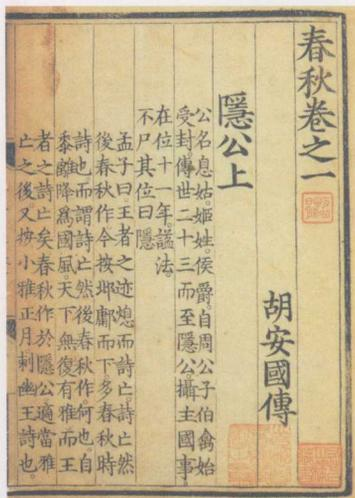 春秋卷之一
胡安國傳
隱公上
公名息姑。姬姓。侯爵。自周公子伯禽始
受封傳世二十三而至隱公。攝主國事
在位十一年。諡法。
不尸其位曰隱
孟子曰。王者之迹熄而詩亡。詩亡然
後春秋作今按邶鄘而下多春秋時
詩也而謂詩亡然後春秋作。何也。自
黍離降爲國風。天下無復有雅而王
者之詩亡矣春秋作於隱公適當雅
亡之後又按小雅正月刺幽王詩也。